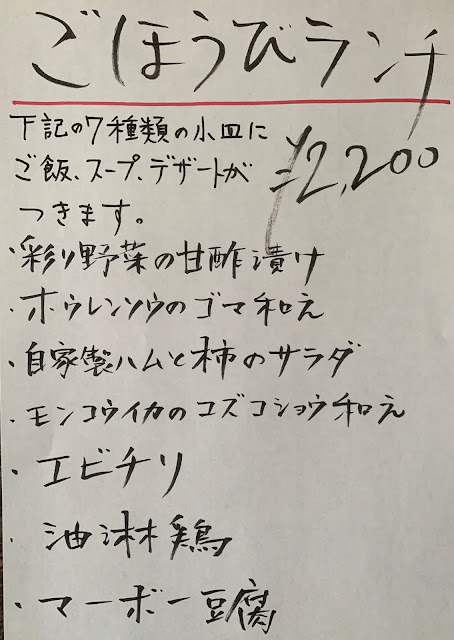 ごほうびランチ
下記の7種類の小皿に
ご飯、スープ、デザートが
つきます。
¥2,200
・彩り野菜の甘酢漬け
・ホウレンソウのゴマ和え
・自家製ハムと柿のサラダ
・モンコウイカのコズコショウ和え
・エビチリ
・油淋鶏
・マーボー豆腐